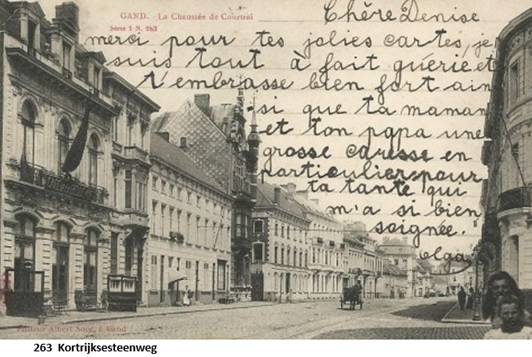 GAND. - La Chaussée de Courtrai
Série 1 N. 263
Chère Denise
merci pour tes jolies cartes, je
suis tout à fait guérie et
t'embrasse bien fort ain
si que ta maman
et ton papa une
grosse caresse en
particulier pour
ta tante qui
m'a si bien
soignée.
Olga
Editeur Albert Sugg, à Gand
263 Kortrijksesteenweg